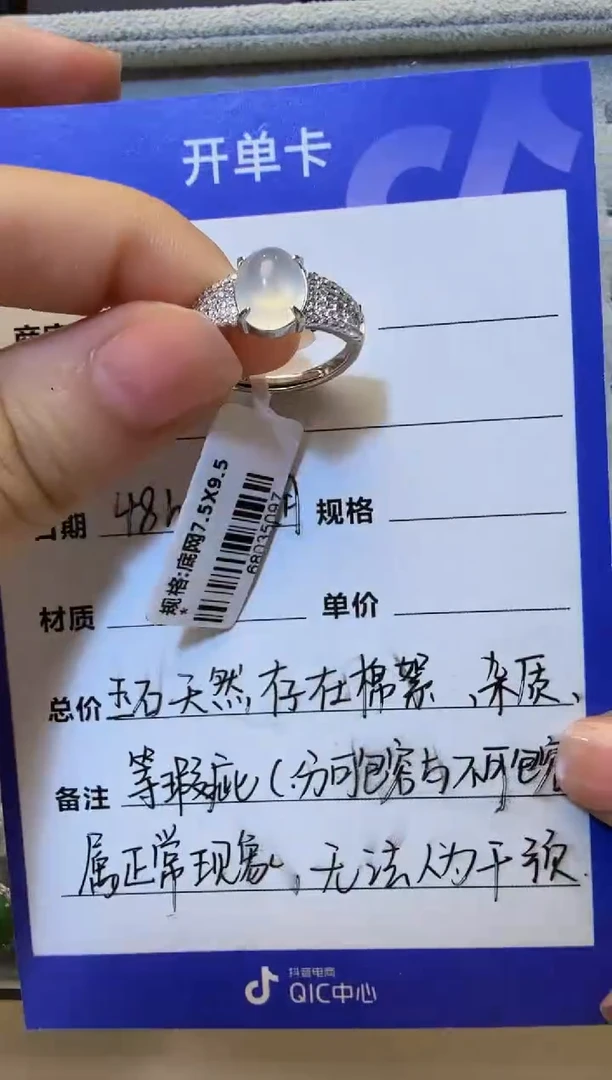 开单卡
规格:底网7.5X9.5
*
68035097
日期 48 规格
材质 单价
总价 玉石天然,存在棉絮、杂质、
备注 等瑕疵(分可包容与不可包容
属正常现象,无法人为干预.
抖音电商
QIC中心